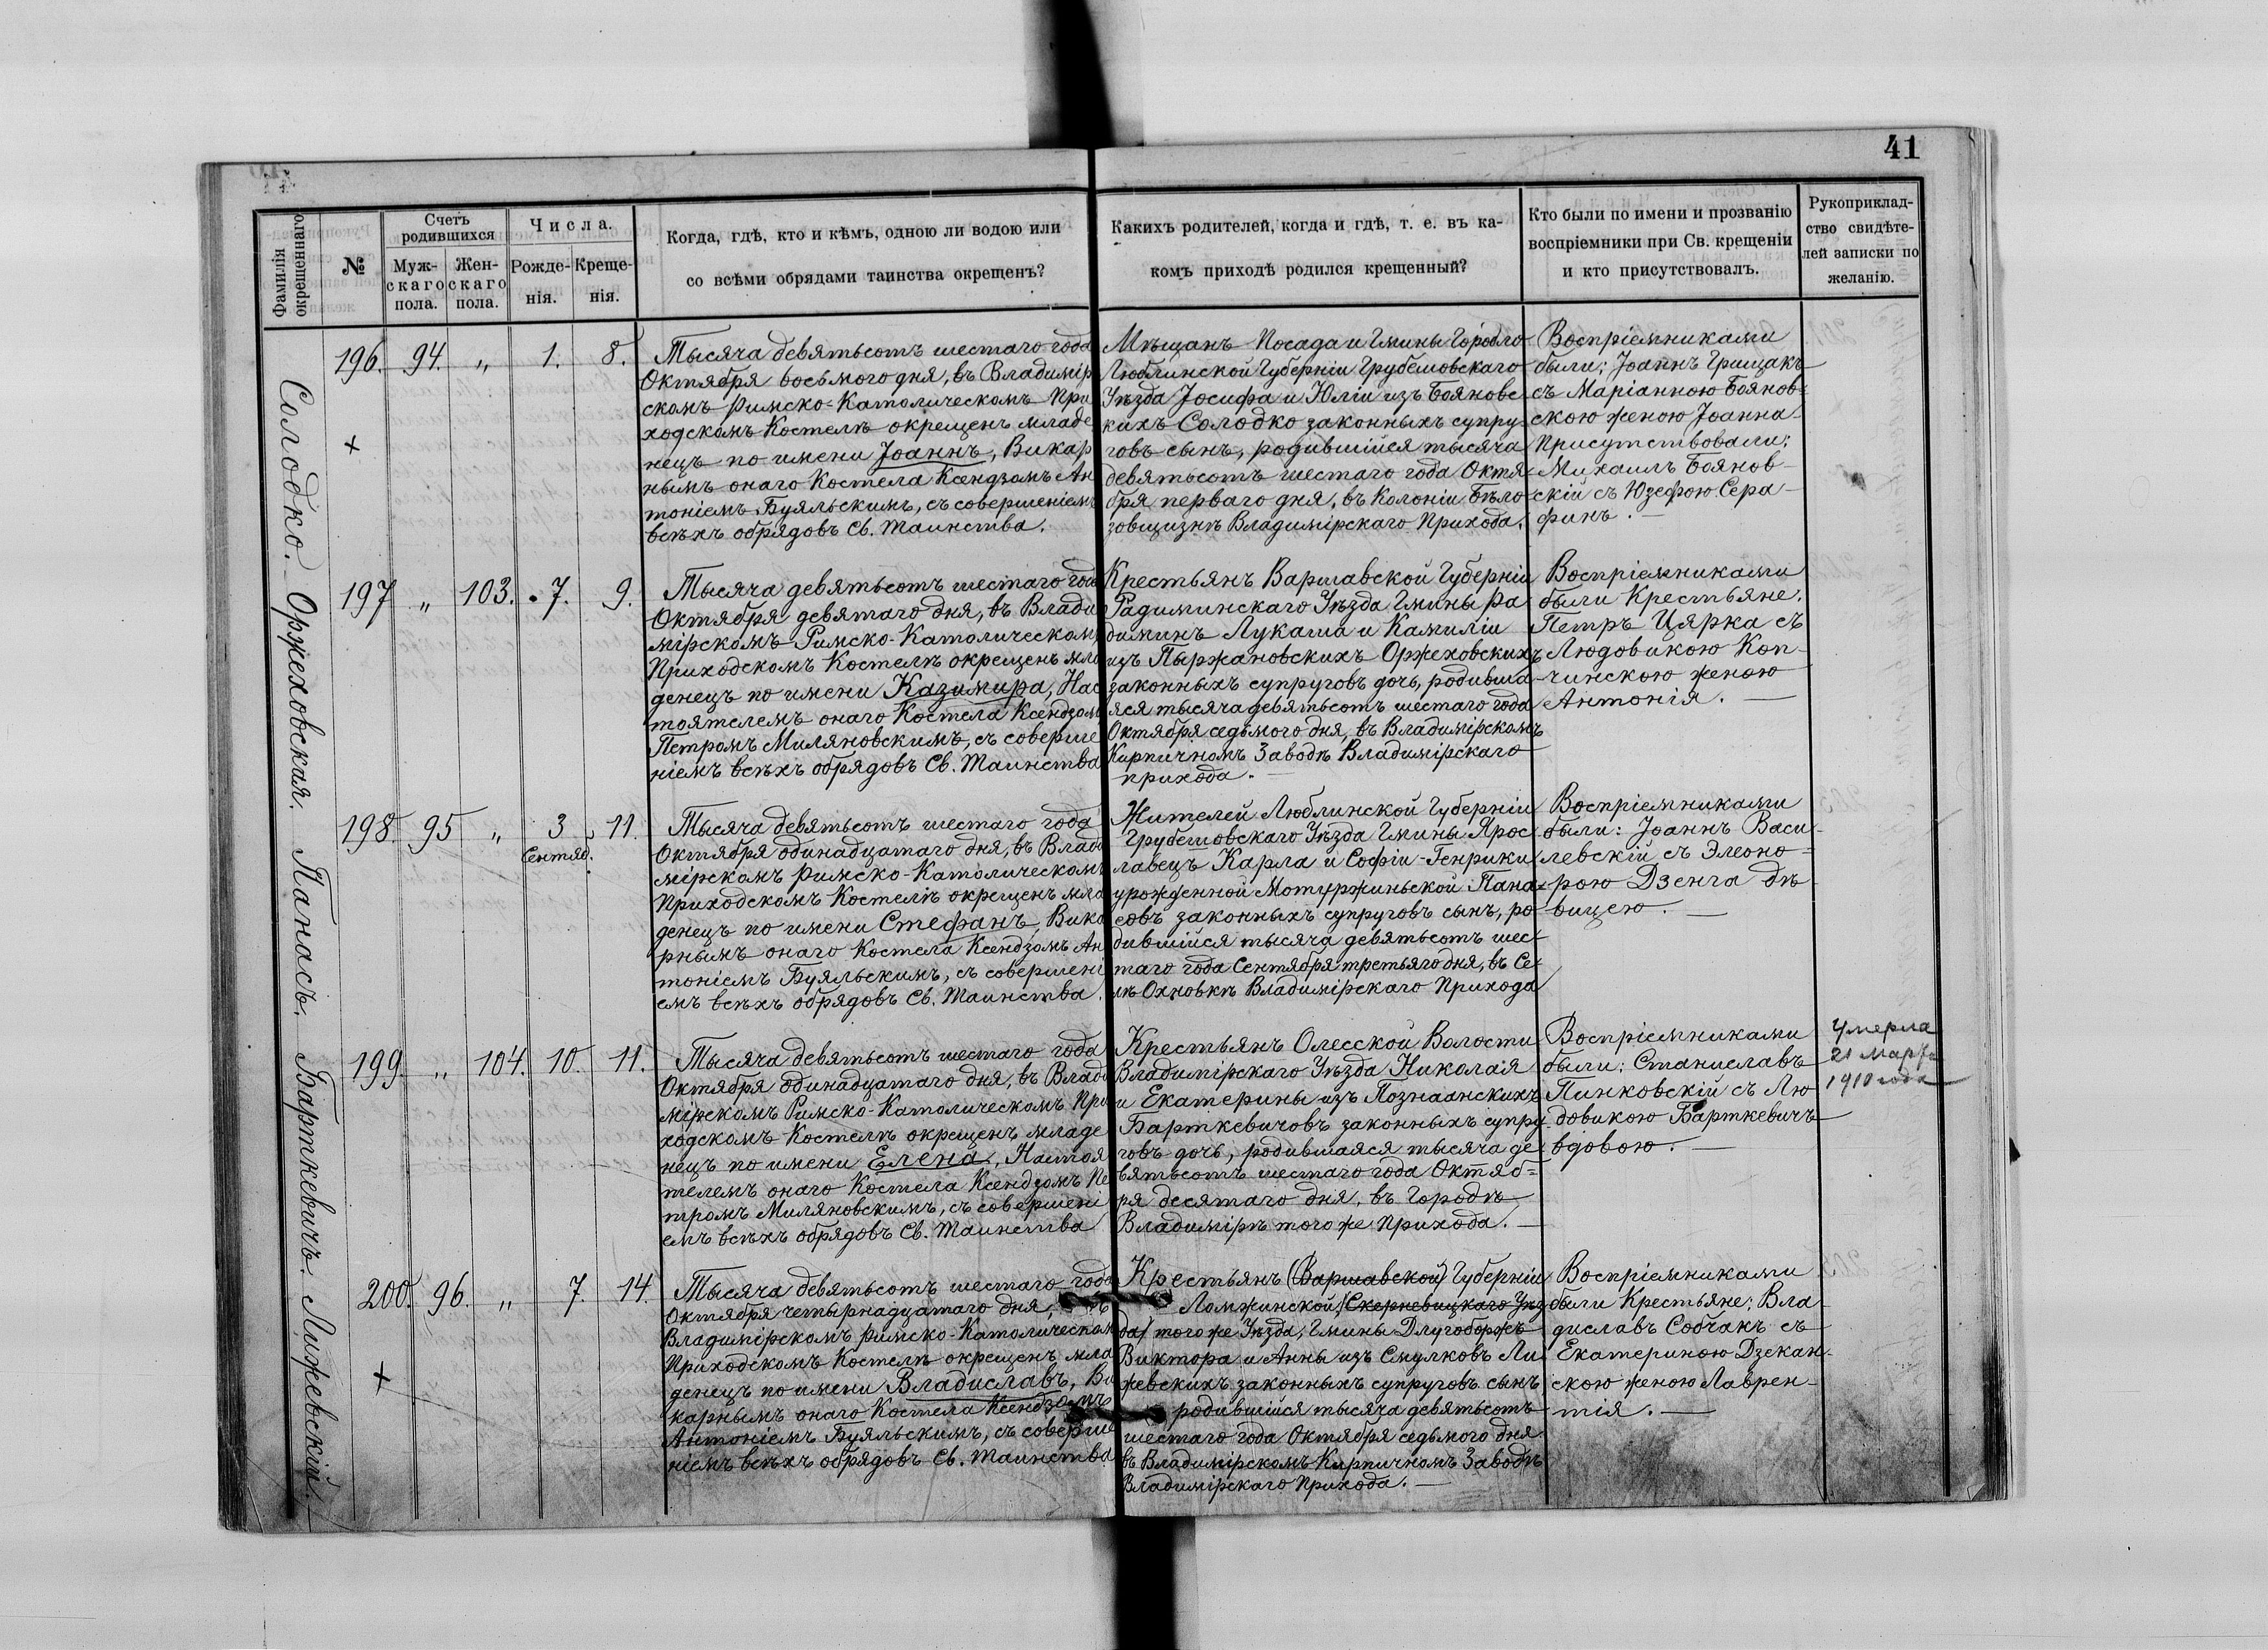 41
Фамилія
окрещеннаго
№
Счетъ
родившихся
Муж-
скаго
пола.
Жен-
скаго
пола.
Числа.
Рожде-
нія.
Креще-
нія.
Когда, гдѣ, кто и кѣмъ, одною ли водою или
со всѣми обрядами таинства окрещенъ?
Какихъ родителей, когда и гдѣ, т. е. въ ка-
комъ приходѣ родился крещенный?
Кто были по имени и прозванію
воспріемники при Св. крещеніи
и кто присутствовалъ.
Рукоприклад-
ство свидѣте-
лей записки по
желанію.
Солодко.
196. 94. „ 1. 8.
+
Тысяча девятьсотъ шестаго года
Октября восьмого дня, въ Владимір
скомъ Римско-Католическомъ При
ходскомъ Костелѣ окрещенъ младе
нецъ по имени Іоаннъ, Викар
нымъ онаго Костела Ксендзомъ Ан
тоніемъ Буяльскимъ, съ совершеніемъ
всѣхъ обрядовъ Св. Таинства.
Мѣщанъ Посада и Гмины Городло
Люблинской Губерніи Грубешовскаго
Уѣзда Іосифа и Юліи изъ Боянове
кихъ Солодко законныхъ супру
говъ сынъ, родившійся тысяча
девятьсотъ шестаго года Октя-
бря перваго дня, въ Колоніи Бѣло
зовщизнѣ Владимірскаго Прихода.
Воспріемниками
были: Іоаннъ Грищакъ
съ Маріанною Боянов-
скою женою Іоанна
Присутствовали:
Михаилъ Боянов-
скій съ Юзефою Сера-
финъ.
Оржеховская.
197 „ 103. 7. 9.
Тысяча девятьсотъ шестаго года
Октября девятаго дня, въ Влади
мірскомъ Римско-Католическомъ
Приходскомъ Костелѣ окрещенъ мла
денецъ по имени Казимира, Нас
тоятелемъ онаго Костела Ксендзомъ
Петромъ Миляновскимъ, съ соверше
ніемъ всѣхъ обрядовъ Св. Таинства
Крестьянъ Варшавской Губерніи
Радиминскаго Уѣзда Гмины Ра
диминъ Лукаша и Камиліи
изъ Пыржановскихъ Оржеховскихъ
законныхъ супруговъ дочь, родивша-
яся тысяча девятьсотъ шестаго года
Октября седьмого дня, въ Владимірскомъ
Кирпичномъ Заводѣ Владимірскаго
прихода.
Воспріемниками
были Крестьяне:
Петръ Цярка съ
Людовикою Коп-
чинскою женою
Антонія.
Панасъ.
198. 95 „ 3 11.
Сентяб.
Тысяча девятьсотъ шестаго года
Октября одинадцатаго дня, въ Влади
мірскомъ Римско-Католическомъ
Приходскомъ Костелѣ окрещенъ мла
денецъ по имени Стефанъ, Вика
рнымъ онаго Костела Ксендзомъ Ан
тоніемъ Буяльскимъ, съ совершені
емъ всѣхъ обрядовъ Св. Таинства.
Жителей Люблинской Губерніи
Грубешовскаго Уѣзда Гмины Ярос
лавецъ Карла и Софіи-Генрики
урожденной Мотуржиньской Пана-
совъ законныхъ супруговъ сынъ, ро
дившійся тысяча девятьсотъ шес-
таго года Сентября третьяго дня, въ Се-
лѣ Охновкѣ Владимірскаго Прихода
Воспріемниками
были: Іоаннъ Васи-
левскій съ Элеоно-
рою Дзенга дѣ-
вицею.
Барткевичъ.
199. „ 104. 10. 11.
Тысяча девятьсотъ шестаго года
Октября одинадцатаго дня, въ Влади
мірскомъ Римско-Католическомъ При
ходскомъ Костелѣ окрещенъ младе
нецъ по имени Елена, Настоя
телемъ онаго Костела Ксендзомъ Пе
тромъ Миляновскимъ, съ совершені
емъ всѣхъ обрядовъ Св. Таинства
Крестьянъ Олесской Волости
Владимірскаго Уѣзда Николая
и Екатерины изъ Познаанскихъ
Барткевичовъ законныхъ супру
говъ дочь, родившаяся тысяча де
вятьсотъ шестаго года Октяб-
ря десятаго дня, въ Городѣ
Владимірѣ того же Прихода.
Воспріемниками
были: Станиславъ
Пинковскій съ Лю
довикою Барткевичъ
вдовою.
Умерла
21 Марта
1910 года
Лижевскій.
200. 96. „ 7. 14.
+
Тысяча девятьсотъ шестаго года
Октября четырнадцатаго дня, въ
Владимірскомъ Римско-Католическомъ
Приходскомъ Костелѣ окрещенъ мла
денецъ по имени Владиславъ, Ви
карнымъ онаго Костела Ксендзомъ
Антоніемъ Буяльскимъ, съ соверше
ніемъ всѣхъ обрядовъ Св. Таинства
Крестьянъ (Варшавской) Губерніи
Ломжинской (Скерневицкаго Уѣз
да) того же Уѣзда, Гмины Длугоборжъ
Виктора и Анны изъ Смулковъ Ли
жевскихъ законныхъ супруговъ сынъ
родившійся тысяча девятьсотъ
шестаго года Октября седьмого дня
въ Владимірскомъ Кирпичномъ Заводѣ
Владимірскаго Прихода.
Воспріемниками
были Крестьяне: Вла-
диславъ Собчакъ съ
Екатериною Дзекан-
скою женою Лаврен-
тія.